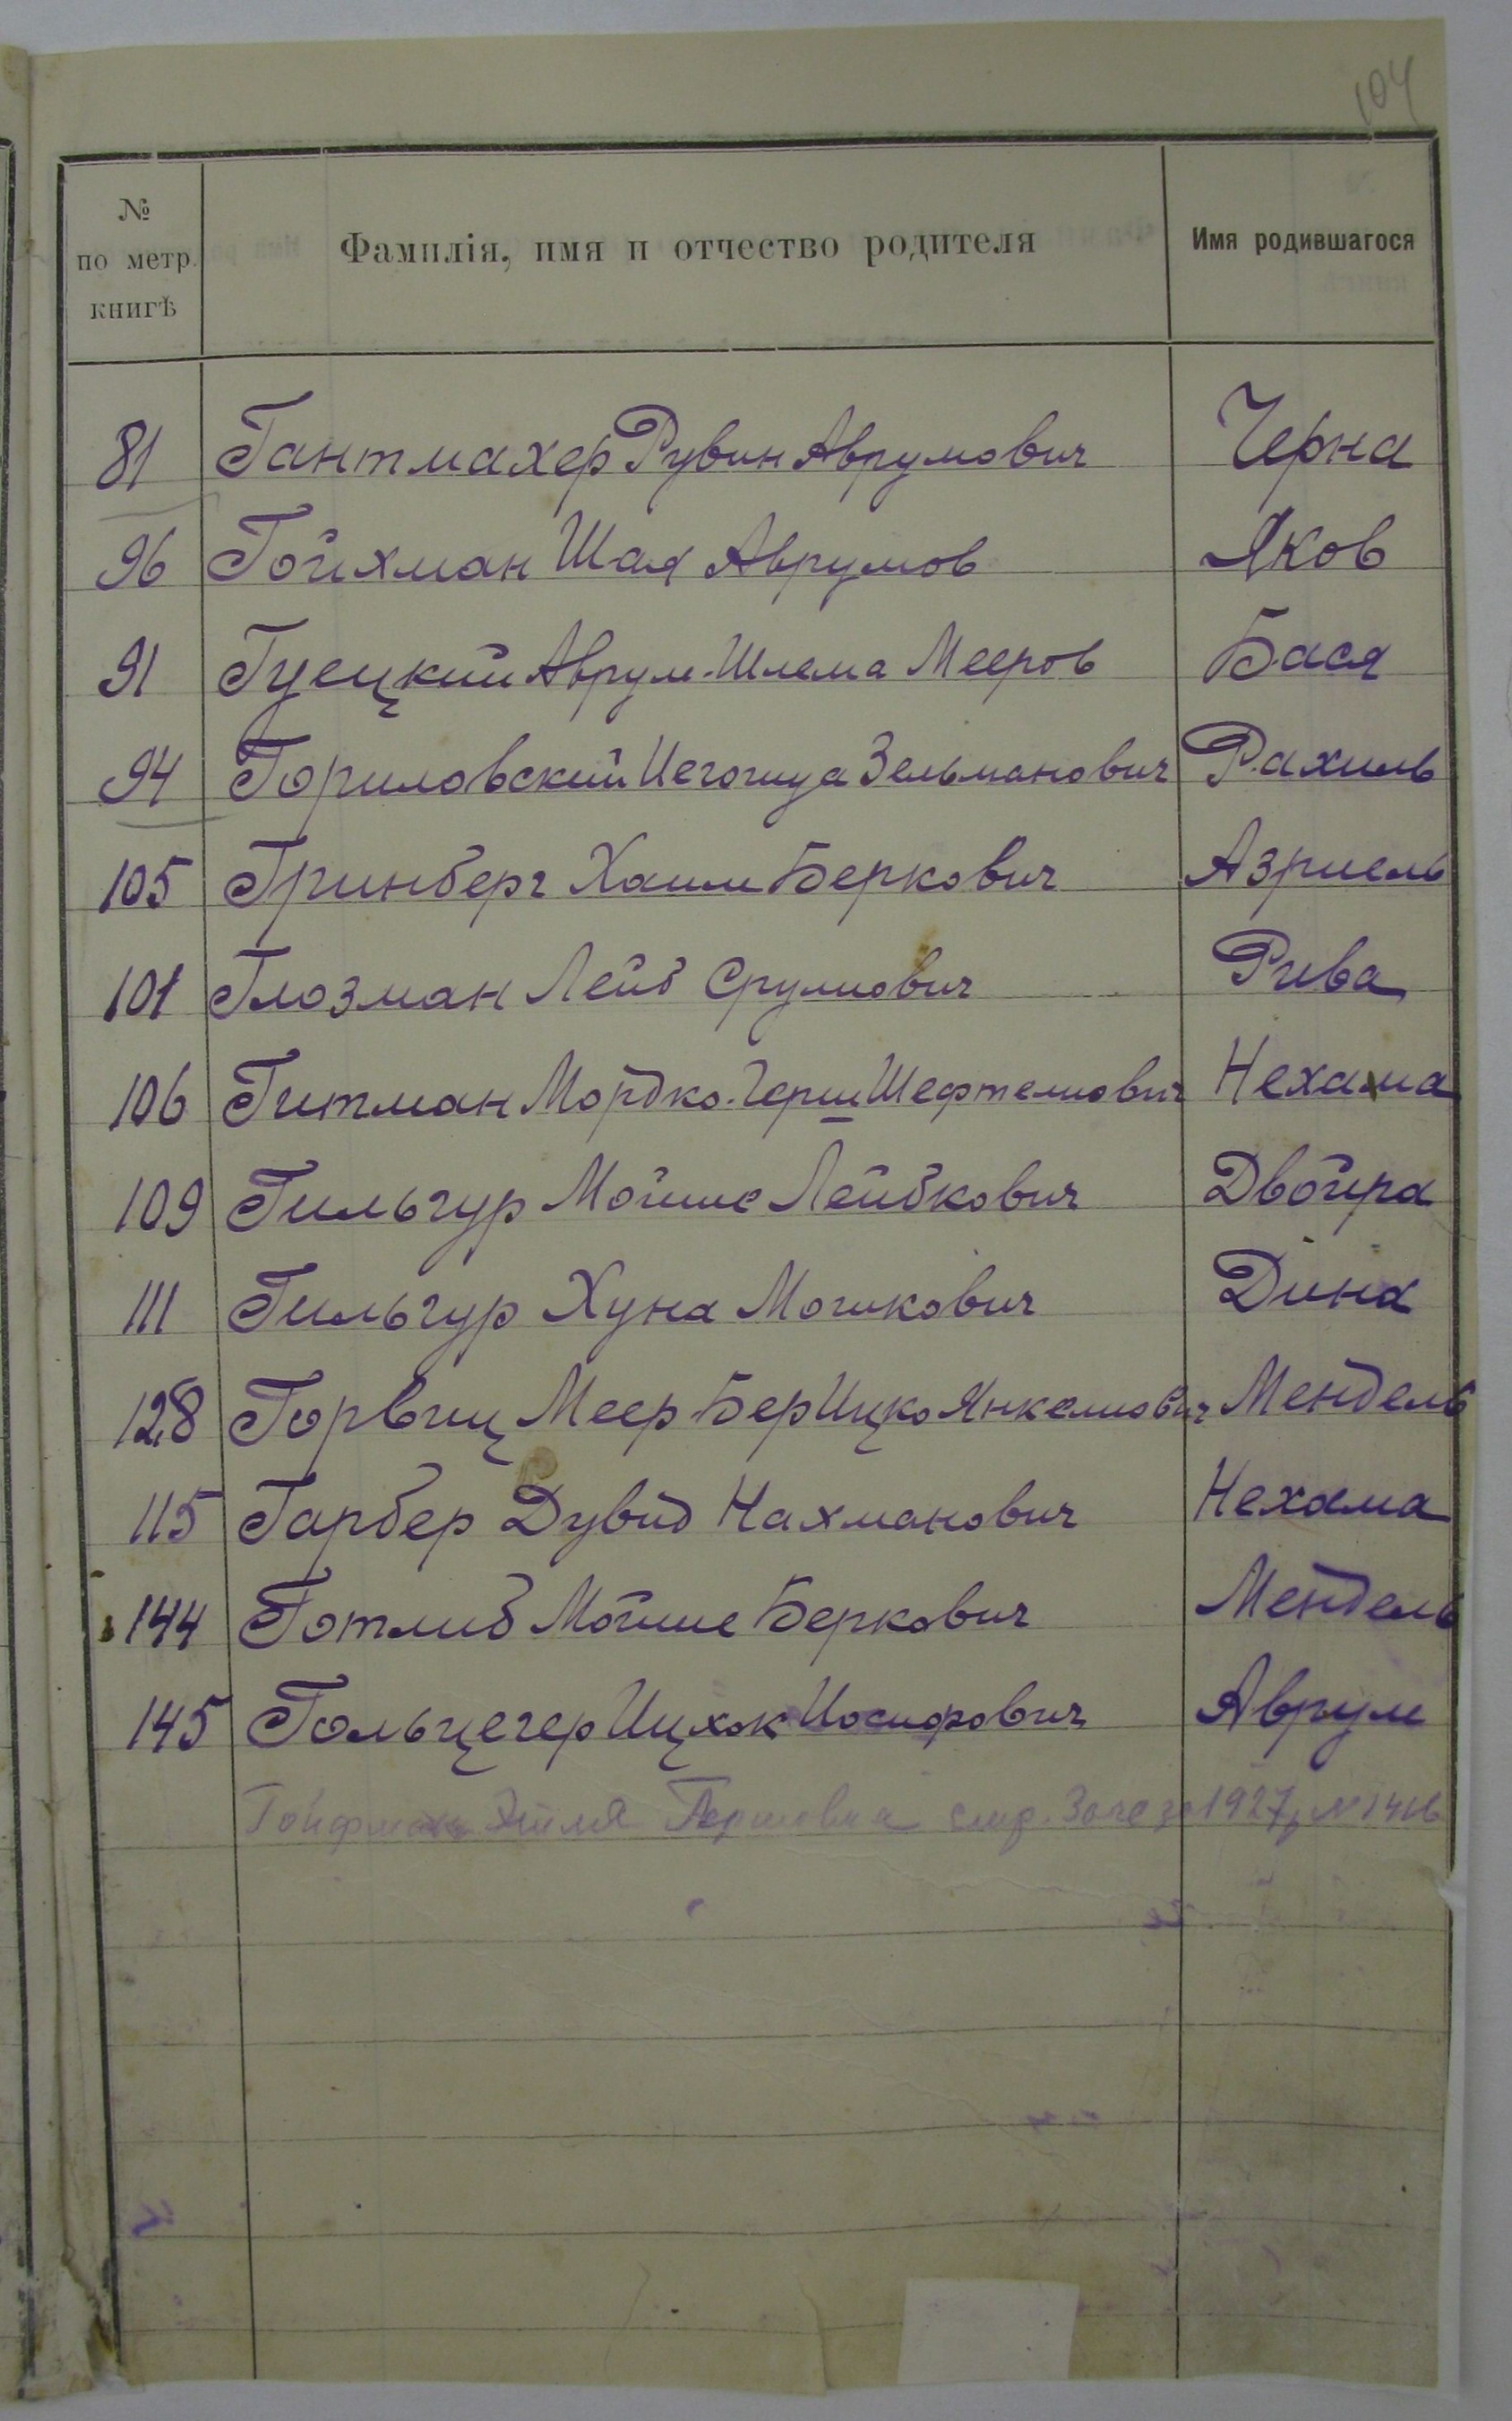 104
№ по метр. книгѣ Фамилія, имя и отчество родителя Имя родившагося
81 Гантмахер Рувин Аврумович Черна
96 Гойхман Шая Аврумов Яков
91 Гуецкий Аврум-Шлема Мееров Бася
94 Гориловский Иегошуа Зельманович Рахиль
105 Гринберг Хаим Беркович Азриель
101 Глозман Лейб Срулиович Рива
106 Гитман Мордко-Герш Шефтелиович Нехама
109 Гильгур Мойше Лейбкович Двойра
111 Гильгур Хуна Мошкович Дина
128 Горвиц Меер-Бер Ицко Янкелиович Мендель
115 Гарбер Дувид Нахманович Нехама
144 Готлиб Мойше Беркович Мендель
145 Гольцегер Ицхок Иосифович Аврум
Гойфман Этля Гершовна 1927